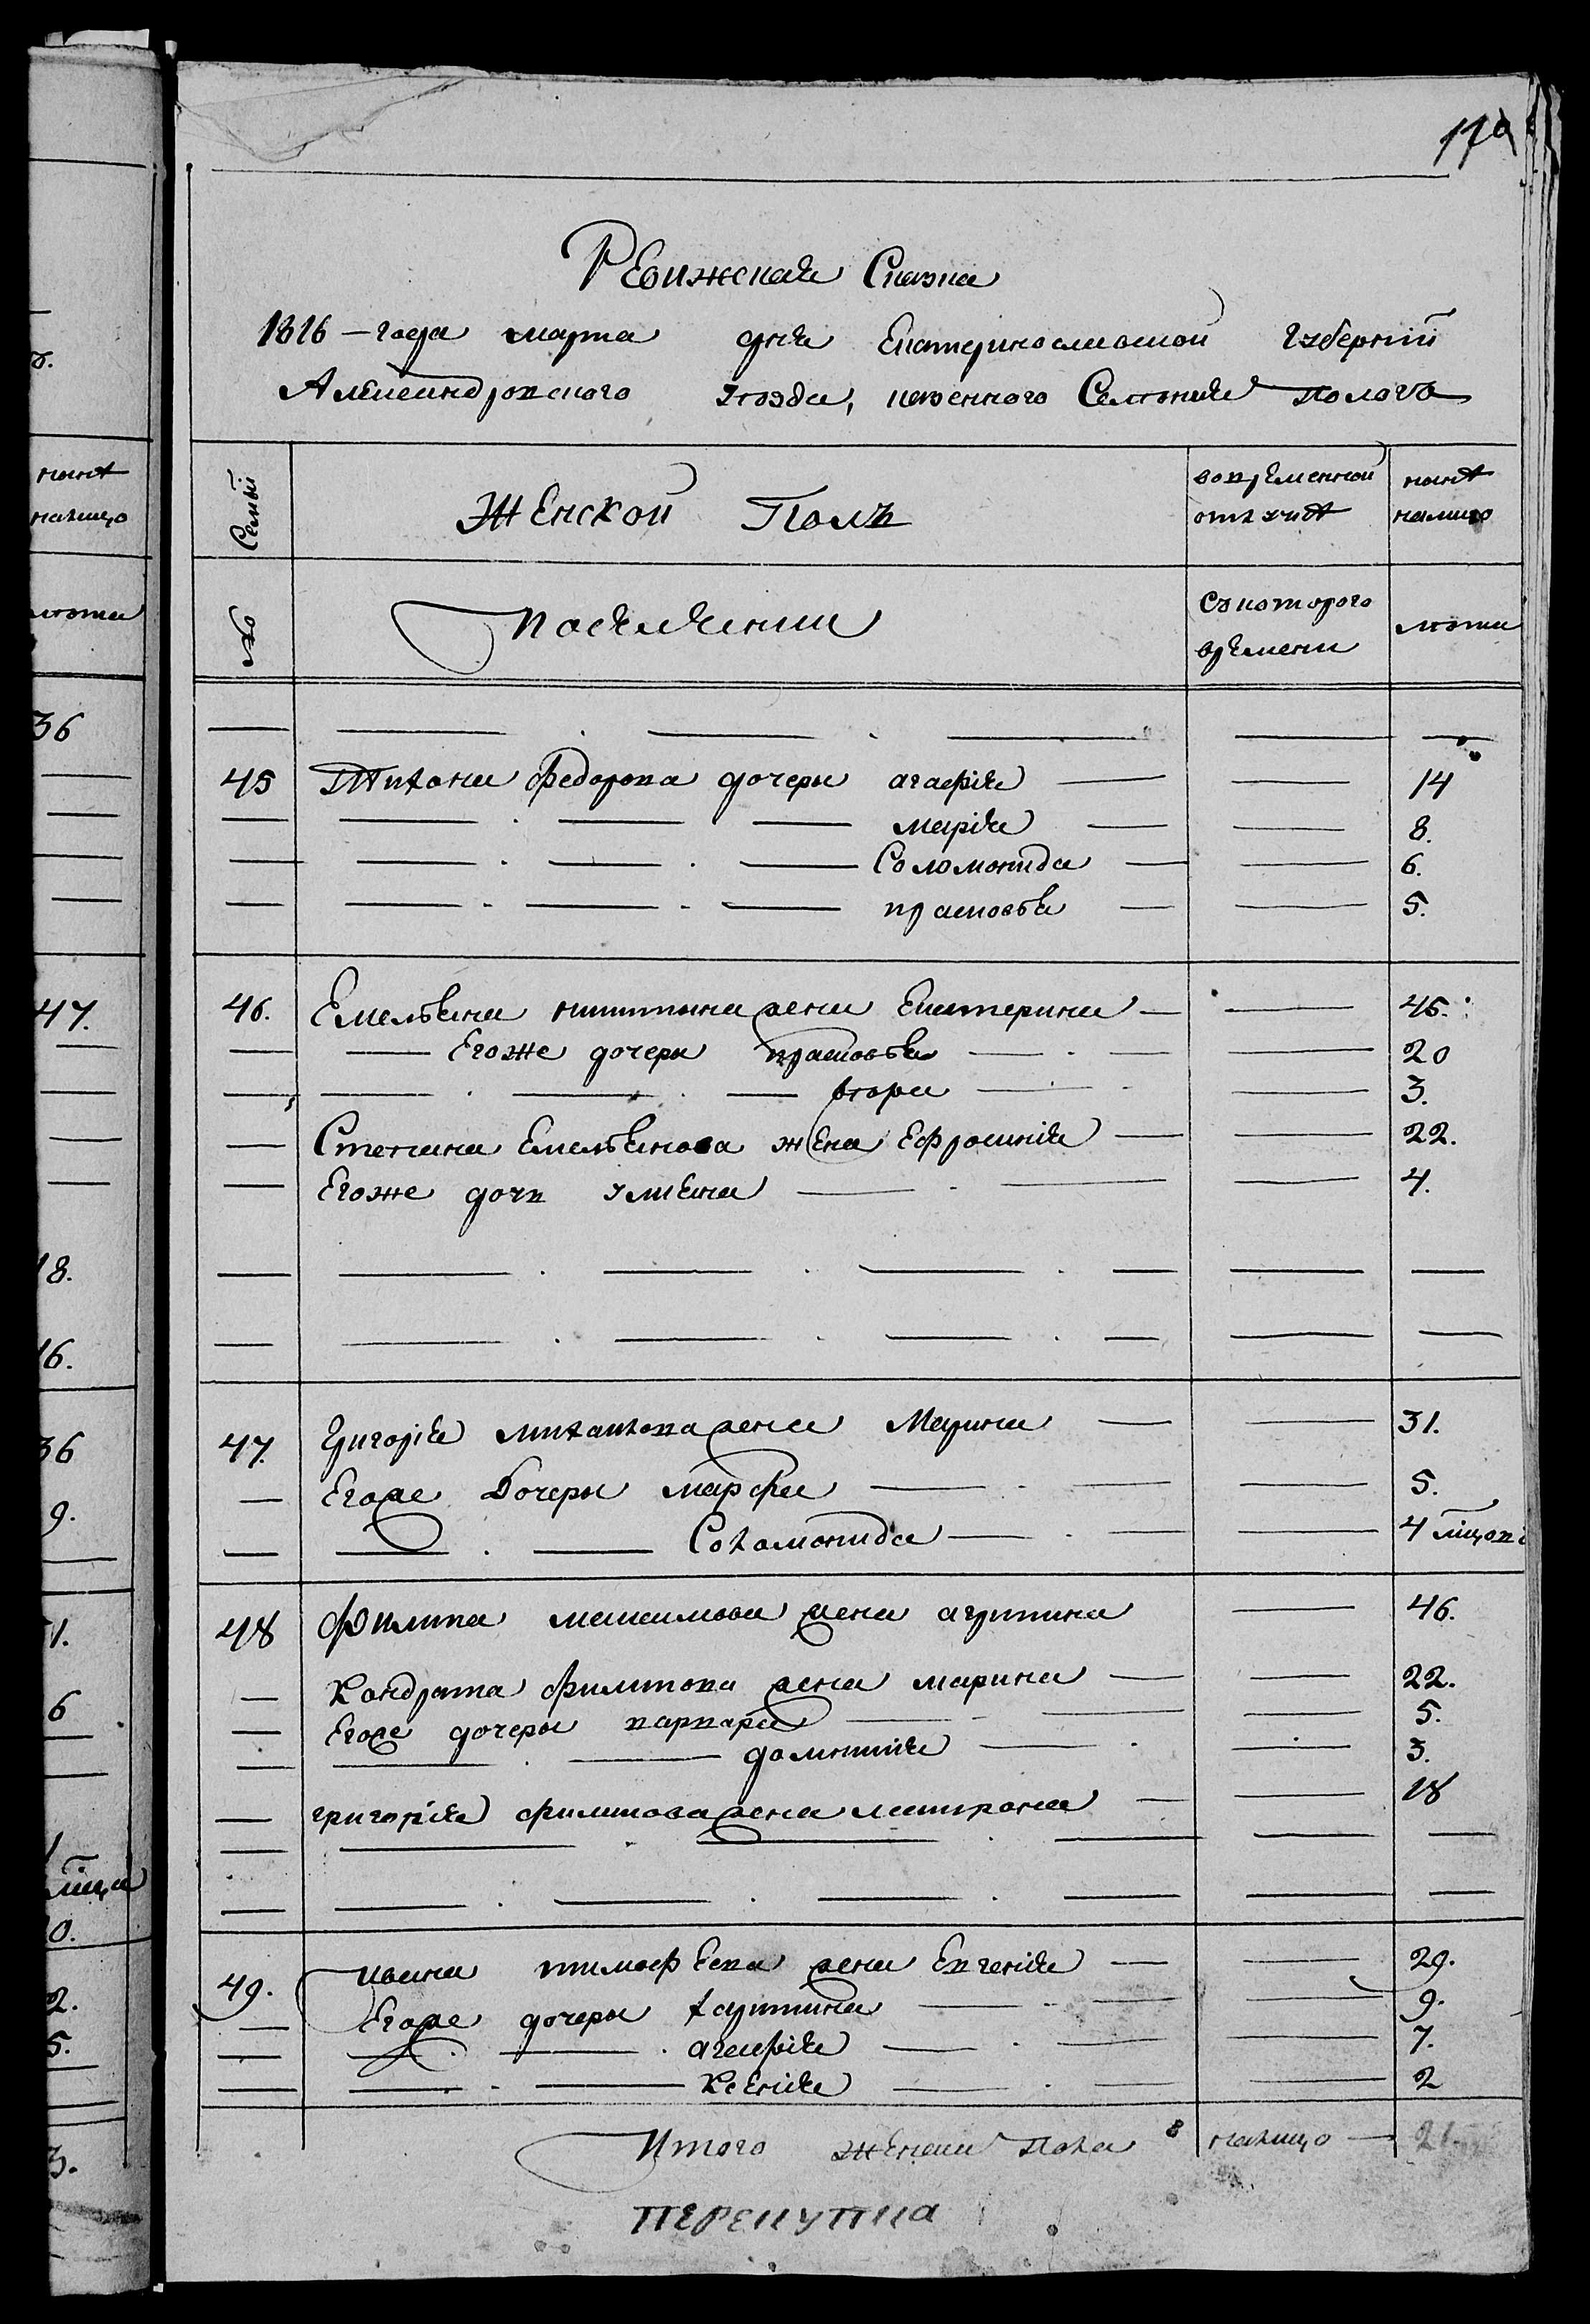 17а
Ревижская Сказка
1816 — года марта дня Екатеринославской Губернiй
Александровского уезда, казенного Селения Пологъ
Семьи
Женской Полъ
во временной
отлучкѣ
нынѣ
налицо
№
Поселяники
съ которого
времени
лѣта
45 Тихона Федорова дочери агафiя — — 14
марiя — — 8.
Соломонида — — 6.
прасковья — — 5.
46. Емельяна никитина жена Екатерина — — 45.
Егоже дочери прасковья — — 20
вера — — 3.
Степана Емельянова жена Ефросинiя — — 22.
Егоже дочь улияна — — 4.
47. Григорiя михайлова жена Марина — — 31.
Егоже Дочери марфа — — 5.
Соломонида — — 4 мѣцовъ
48 Филипа максимова жена агрипина — 46.
Кондрата филипова жена марина — — 22.
Егоже дочери варвара — — 5.
доминикiя — — 3.
григорiя филипова жена матрона — — 18
49. ивана тимофеева жена Евгенiя — — 29.
Егоже дочери харитина — — 9.
агафiя — — 7.
Ксенiя — — 2
Итого женска пола налицо — 21.
перекупка
нынѣ
налицо
лѣта
36
47.
18.
16.
36
9.
1.
6
0.
2.
5.
3.